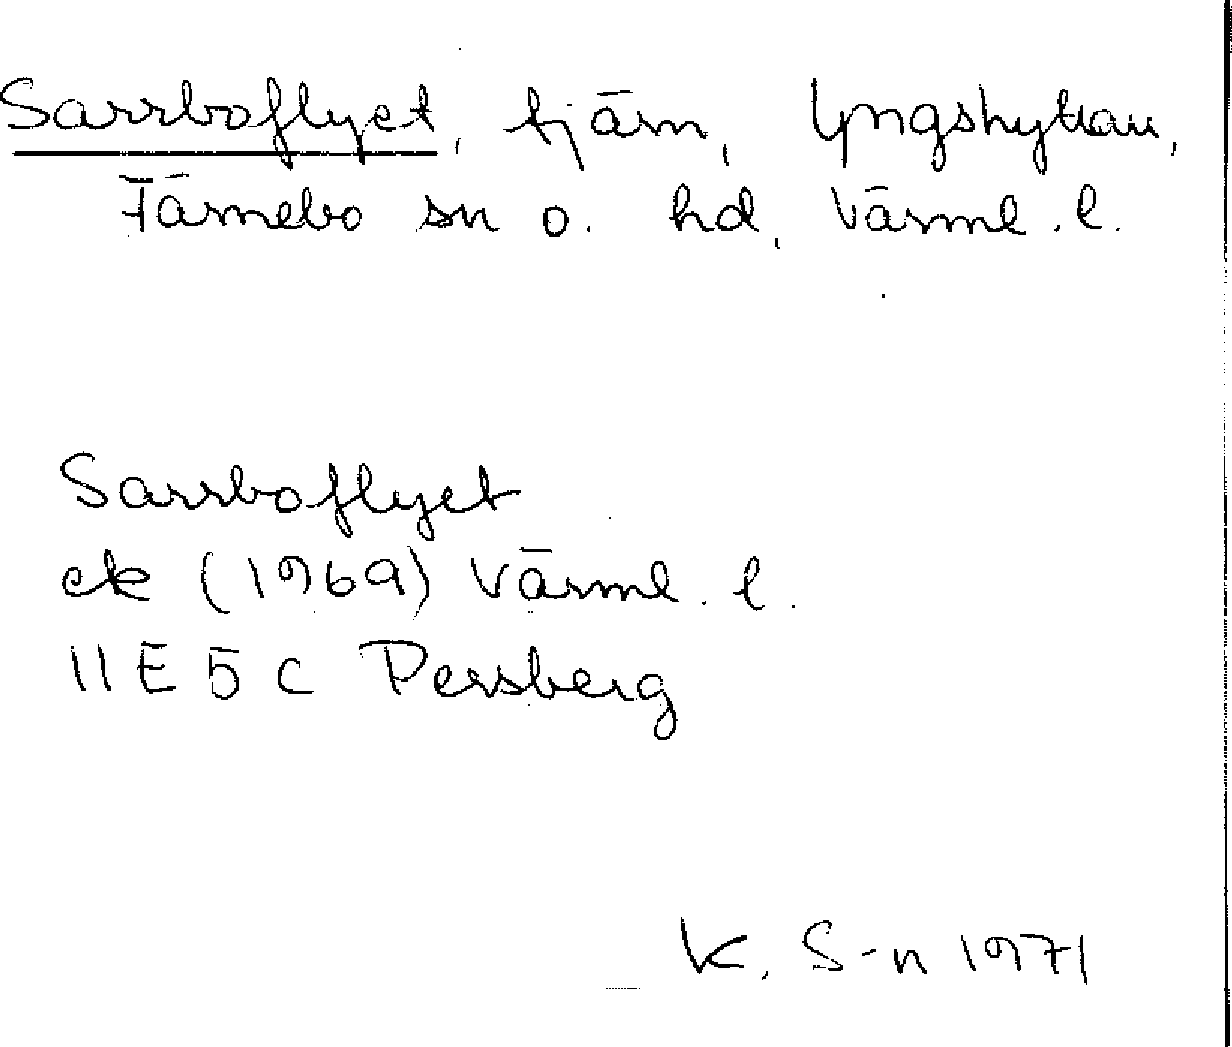 Sarrboflyet, tjärn, Yngshyttan,
Färnebo sn o. hd, Värml. l.
Sarrboflyet
ek (1969) Värml. l.
11E 5c Persberg
K. S-n 1971